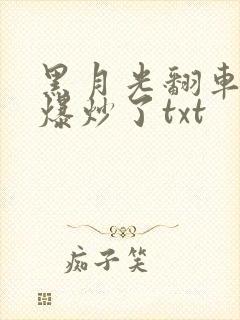 黑月光翻車
爆炒了txt
痴子笑